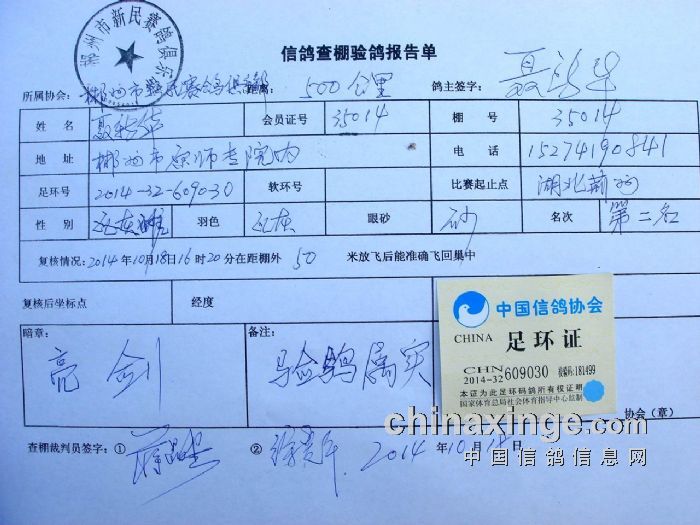 郴州市新民赛鸽俱乐部
信鸽查棚验鸽报告单
所属协会：郴州市新民赛鸽俱乐部 距离：500公里 鸽主签字：聂
姓 名 聂 会员证号 35014 棚 号 35014
地 址 郴州市 师专院内 电 话 15274190841
足环号 2014-32-609030 软环号 比赛起止点 湖北荆州
性 别 灰雄 羽色 灰 眼砂 砂 名次 第二名
复核情况：2014年10月18日16时20分在距棚外 50 米放飞后能准确飞回巢中
复核后坐标点 经度
暗章： 备注：
亮剑 验鸽属实
中国信鸽协会
CHINA 足环证
CHN
2014-32 609030 核编码:181499
本证为此足环码鸽所有权证明
国家体育总局社会体育指导中心监制
协会（章）
查棚裁判员签字：① ② 2014年10月18日
chinaxinge.com
中国信鸽信息网